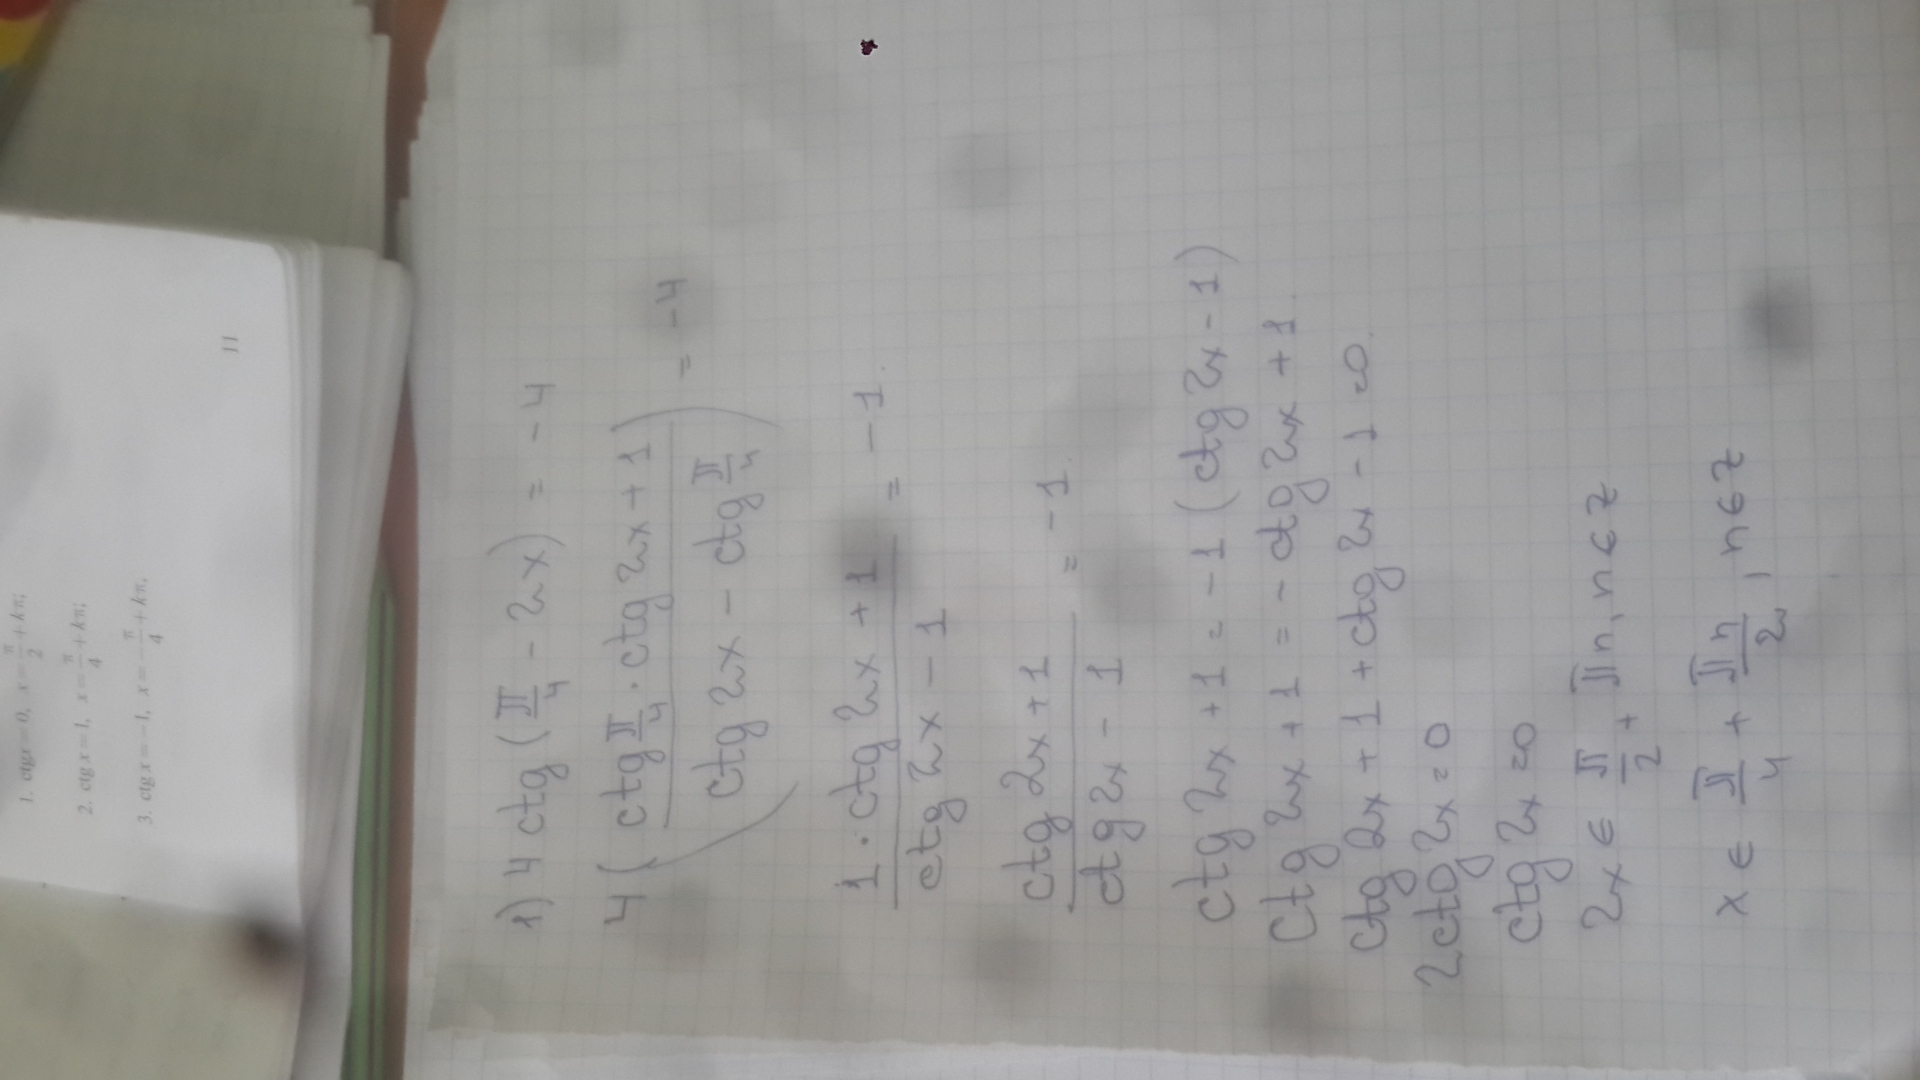 1. ctgx=0, x=π/2+kπ;
2. ctgx=1, x=π/4+kπ;
3. ctgx=-1, x=-π/4+kπ.
11
1) 4 ctg (π/4 - 2x) = -4
4 ( (ctg π/4 · ctg 2x + 1) / (ctg 2x - ctg π/4) ) = -4
(1 · ctg 2x + 1) / (ctg 2x - 1) = -1.
(ctg 2x + 1) / (ctg 2x - 1) = -1.
ctg 2x + 1 = -1 (ctg 2x - 1)
ctg 2x + 1 = - ctg 2x + 1.
ctg 2x + 1 + ctg 2x - 1 = 0.
2ctg 2x = 0
ctg 2x = 0
2x ∈ π/2 + πn, n ∈ z
x ∈ π/4 + πn/2, n ∈ z